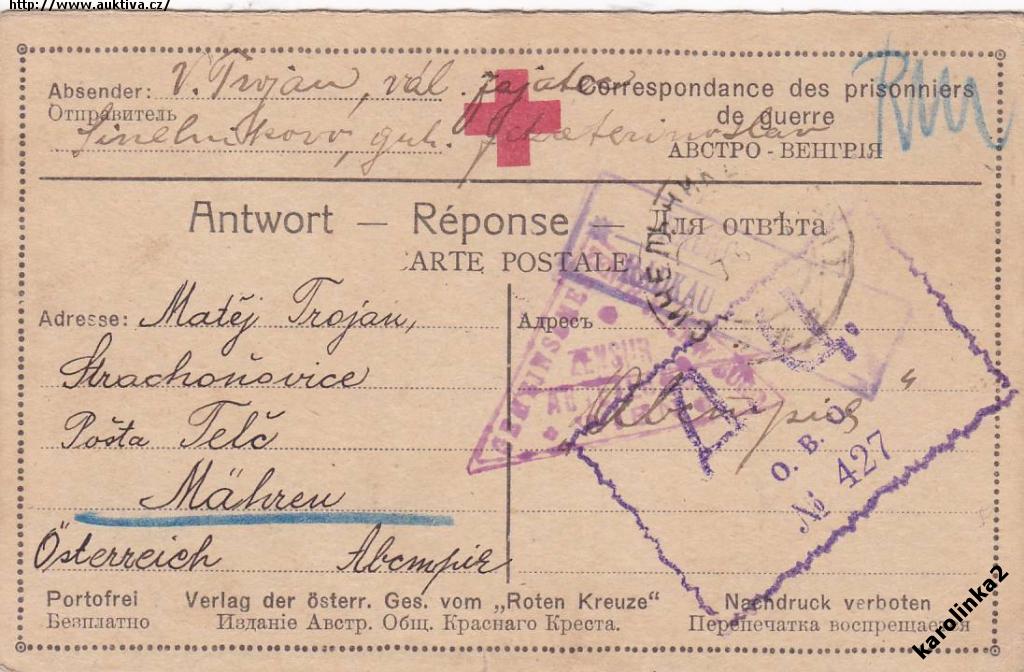 http://www.auktiva.cz/
Absender: V. Trojan, vál. zajatec
Отправитель
Sinelnikovo, gub. Jekaterinoslav
Correspondance des prisonniers
de guerre
АВСТРО - ВЕНГРIЯ
Antwort — Réponse — Для отвѣта
CARTE POSTALE
Adresse: Matěj Trojan,
Strachoňovice
Pošta Telč
Mähren
Österreich Австрiя
Адресъ
„Австрiя“
ZENSUR
Д. Ц.
О. В. О.
№ 427
Portofrei
Безплатно
Verlag der österr. Ges. vom „Roten Kreuze“
Изданіе Австр. Общ. Краснаго Креста.
Nachdruck verboten
Перепечатка воспрещается
karolinka2